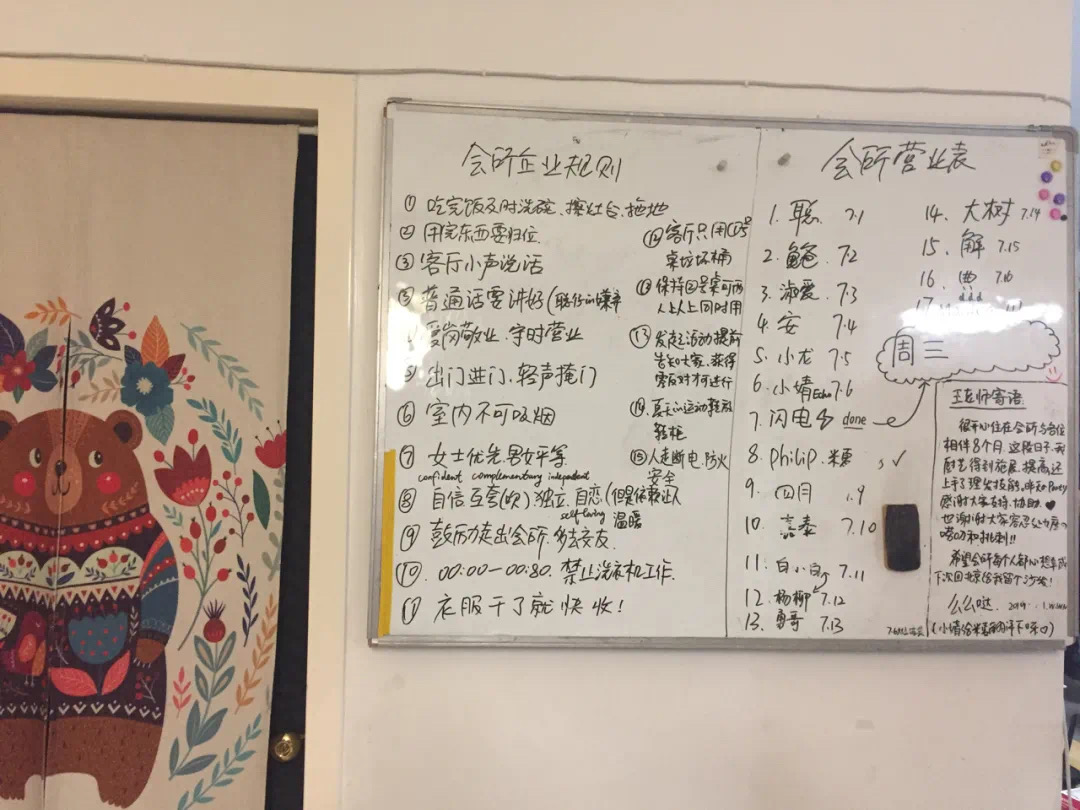 会所企业规则
① 吃完饭及时洗碗、擦灶台、拖地
② 用完东西要归位
③ 客厅小声说话
普通话要讲好(
爱岗敬业、守时营业
出门进门、轻声掩门
⑥ 室内不可吸烟
⑦ 女士优先、男女平等
confident complementary independent
⑧ 自信 互夸(吹) 独立、自恋(但是依赖让人
self-loving 温暖
⑨ 鼓励走出会所、多去交友
⑩ 00:00—00:80. 禁止洗衣机工作.
⑪ 衣服干了就快收!
客厅只用
桌垃圾桶
保持
人上人上同时用
发起活动提前
告知大家、获得
零反对才可进行
⑭ 夏天运动鞋放
鞋柜
⑮ 人走断电、防火
安全
会所营业表
1. 聪 7.1
2. 鲍 7.2
3. 淑爱 7.3
4. 安 7.4
5. 小龙 7.5
6. 小婧 Echo 7.6
7. 闪电 done
8. philip. 米 ✓
9. 四月 .9
10. 嘉泰 7.10
11. 白小白 7.11
12. 杨柳 7.12
13. 勇哥 7.13
14. 大树 7.14
15. 解 7.15
16. 典 7.16
17.
周三
王老师寄语
很开心住在会所与各位
相伴8个月,这段日子,我
厨艺得到施展、提高,还
上手了理发技能,
感谢大家支持、协助.♥
也谢谢大家容忍
唠叨和批判!!
希望会所每个人都心想事成
下次回北京给我留个沙发!
么么哒. 2019.